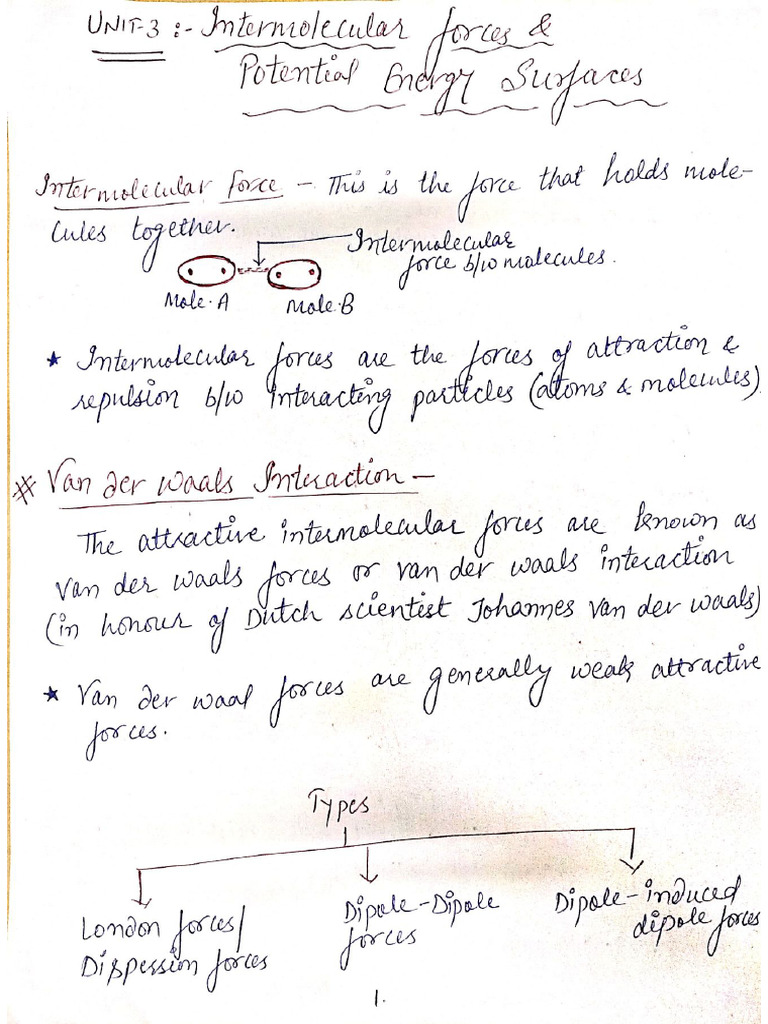 UNIT-3 :- Intermolecular forces &
Potential Energy Surfaces
Intermolecular force - This is the force that holds mole-
cules together.
Intermolecular
force b/w molecules.
Mole.A Mole.B
* Intermolecular forces are the forces of attraction &
repulsion b/w interacting particles (atoms & molecules).
# Van der waals Interaction -
The attractive intermolecular forces are known as
van der waals forces or van der waals interaction
(in honour of Dutch scientist Johannes van der waals)
* Van der waal forces are generally weak attractive
forces.
Types
London forces/ Dipole-Dipole Dipole-induced
Dispession forces forces dipole forces
1.